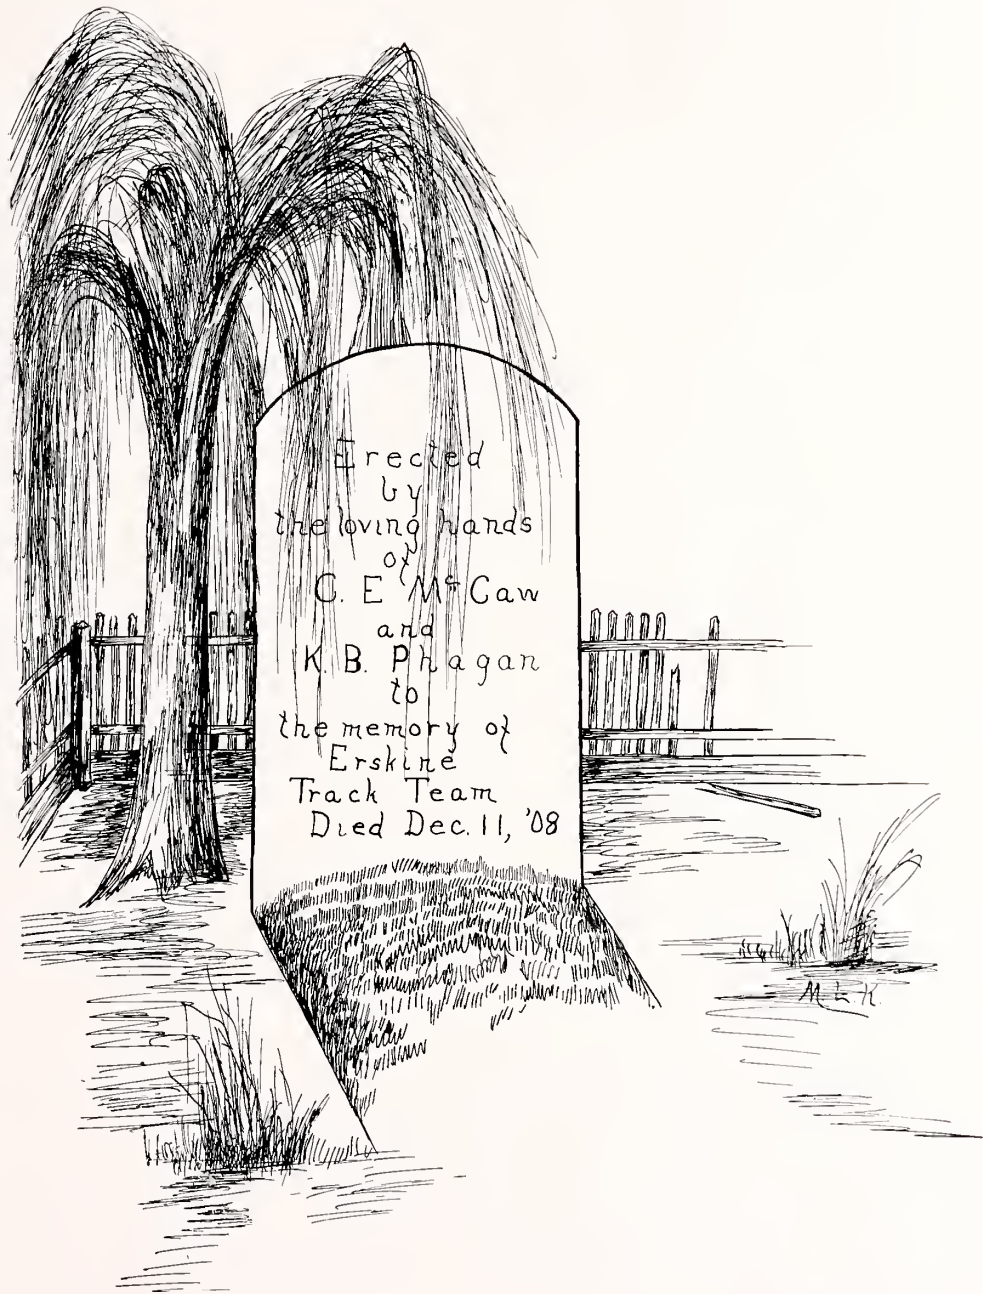 Erected
by
the loving hands
of
C. E McCaw
and
K. B. Phagan
to
the memory of
Erskine
Track Team
Died Dec. 11, '08
M. L. K.